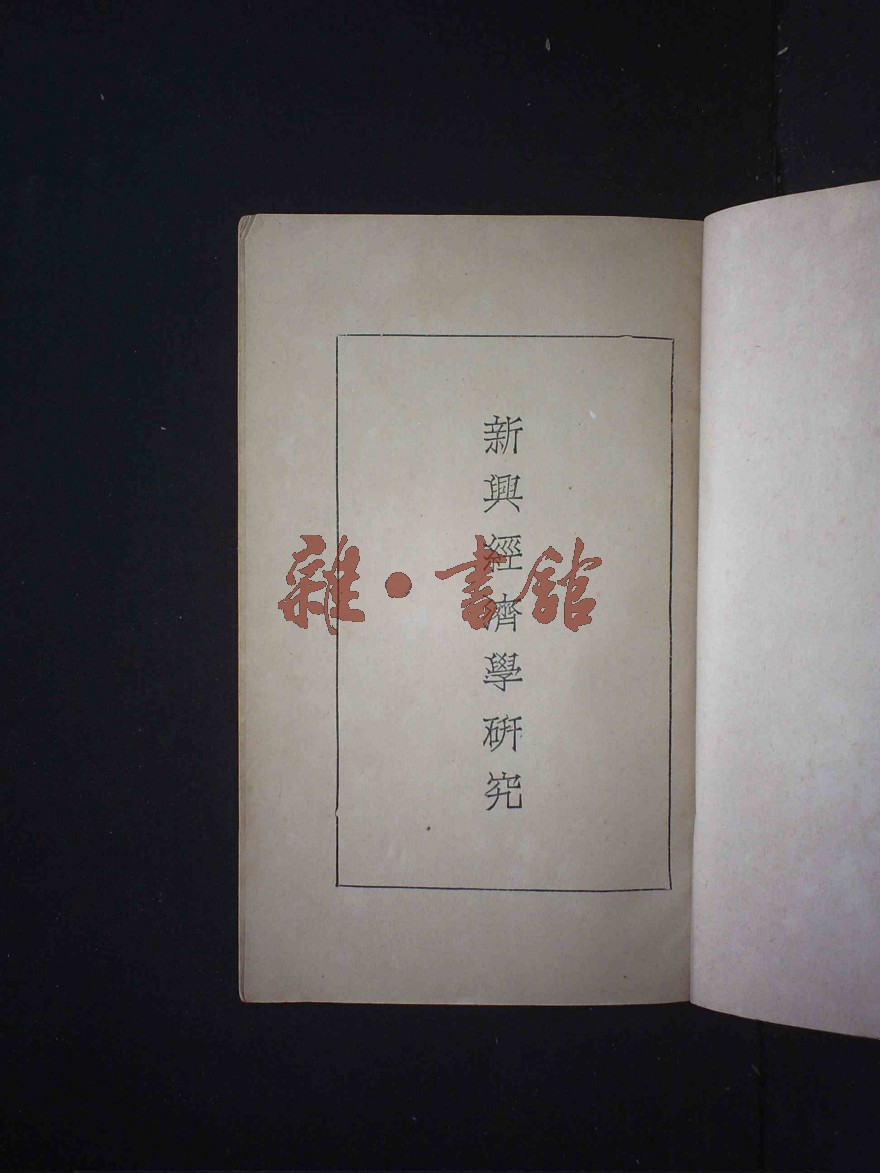 新興經濟學研究
雜·書館